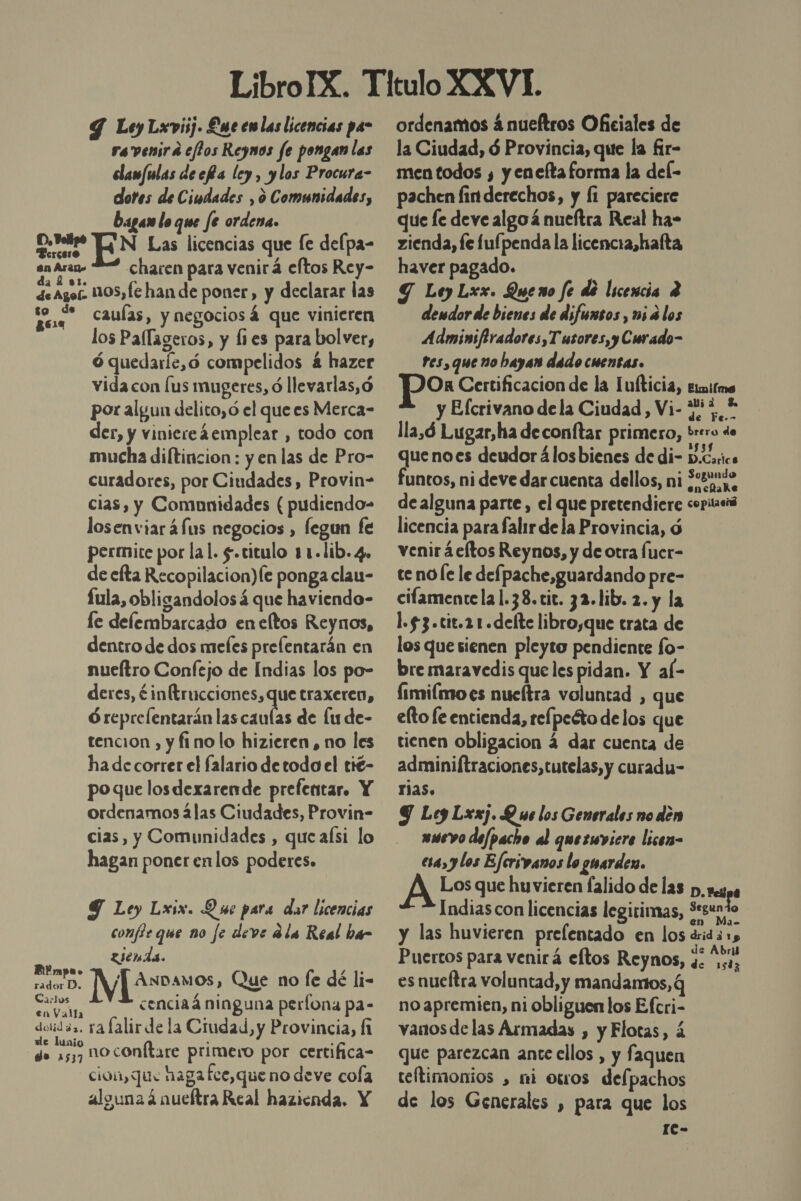 Libro IX. Titulo XXVI.
¶ Ley Lxviij. Que en las licencias pa-
ra venir à estos Reynos se pongan las
clausulas de esta ley, y los Procura-
dores de Ciudades, ò Comunidades,
hagan lo que se ordena.
D. Felipe
Tercero
en Aran-
da
de Agos-
to de
1619
EN Las licencias que ſe deſpa-
charen para venir á eſtos Rey-
nos, ſe han de poner, y declarar las
cauſas, y negocios á que vinieren
los Paſſageros, y ſi es para bolver,
ó quedarſe, ó compelidos á hazer
vida con ſus mugeres, ó llevarlas, ó
por algun delito, ó el que es Merca-
der, y viniere á emplear, todo con
mucha diſtincion: y en las de Pro-
curadores, por Ciudades, Provin-
cias, y Comunidades (pudiendo-
los enviar á ſus negocios, ſegun ſe
permite por la l. 5. titulo 11. lib. 4.
de eſta Recopilacion) ſe ponga clau-
ſula, obligandolos á que haviendo-
ſe deſembarcado en eſtos Reynos,
dentro de dos meſes preſentarán en
nueſtro Conſejo de Indias los po-
deres, é inſtrucciones, que traxeren,
ó repreſentarán las cauſas de ſu de-
tencion, y ſi no lo hizieren, no les
ha de correr el ſalario de todo el tié-
po que los dexaren de preſentar. Y
ordenamos á las Ciudades, Provin-
cias, y Comunidades, que aſsi lo
hagan poner en los poderes.
¶ Ley Lxix. Que para dar licencias
conste que no se deve à la Real ha-
zienda.
El Empe-
rador D.
Carlos
en Valla
dolid
de Iunio
de 1537
MANDAMOS, Que no ſe dé li-
cencia á ninguna perſona pa-
ra ſalir de la Ciudad, y Provincia, ſi
no conſtare primero por certifica-
cion, que haga fee, que no deve coſa
alguna á nueſtra Real hazienda. Y
ordenamos á nueſtros Oficiales de
la Ciudad, ó Provincia, que la fir-
men todos, y en eſta forma la deſ-
pachen ſin derechos, y ſi pareciere
que ſe deve algo á nueſtra Real ha-
zienda, ſe ſuſpenda la licencia, haſta
haver pagado.
¶ Ley Lxx. Que no se dè licencia à
deudor de bienes de difuntos, ni à los
Administradores, Tutores, y Curado-
res, que no hayan dado cuentas.
POR Certificacion de la Iuſticia,
y Eſcrivano de la Ciudad, Vi-
lla, ó Lugar, ha de conſtar primero,
que no es deudor á los bienes de di-
funtos, ni deve dar cuenta dellos, ni
de alguna parte, el que pretendiere
licencia para ſalir de la Provincia, ó
venir á eſtos Reynos, y de otra ſuer-
te nó ſe le deſpache, guardando pre-
ciſamente la l. 38. tit. 32. lib. 2. y la
l. 53. tit. 21. deſte libro, que trata de
los que tienen pleyto pendiente ſo-
bre maravedis que les pidan. Y aſ-
ſimiſmo es nueſtra voluntad, que
eſto ſe entienda, reſpecto de los que
tienen obligacion á dar cuenta de
adminiſtraciones, tutelas, y curadu-
rias.
El miſmo
alli á
de Fe-
brero de
D. Carlos
Segundo
en eſta Re
copilació
¶ Ley Lxxj. Que los Generales no dèn
nuevo despacho al que tuviere licen-
cia, y los Escrivanos lo guarden.
A Los que huvieren ſalido de las
Indias con licencias legitimas,
y las huvieren preſentado en los
Puertos para venir á eſtos Reynos,
es nueſtra voluntad, y mandamos, q̃
no apremien, ni obliguen los Eſcri-
vanos de las Armadas, y Flotas, á
que parezcan ante ellos, y ſaquen
teſtimonios, ni otros deſpachos
de los Generales, para que los
D. Felipe
Segundo
en Ma-
drid á 19
de Abril
de 1583
re-